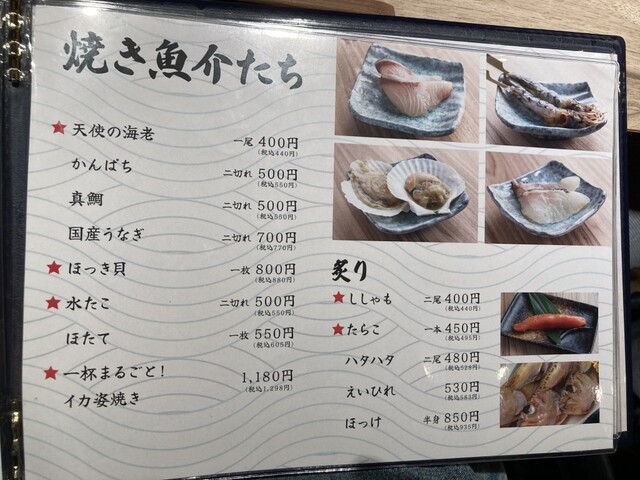 焼き魚介たち
★天使の海老 一尾 400円
(税込440円)
かんぱち 二切れ 500円
(税込550円)
真鯛 二切れ 500円
(税込550円)
国産うなぎ 二切れ 700円
(税込770円)
★ほっき貝 一枚 800円
(税込880円)
★水たこ 二切れ 500円
(税込550円)
ほたて 一枚 550円
(税込605円)
★一杯まるごと! 1,180円
イカ姿焼き (税込1,298円)
炙り
★ししゃも 二尾 400円
(税込440円)
★たらこ 一本 450円
(税込495円)
ハタハタ 二尾 480円
(税込528円)
えいひれ 530円
(税込583円)
ほっけ 半身 850円
(税込935円)